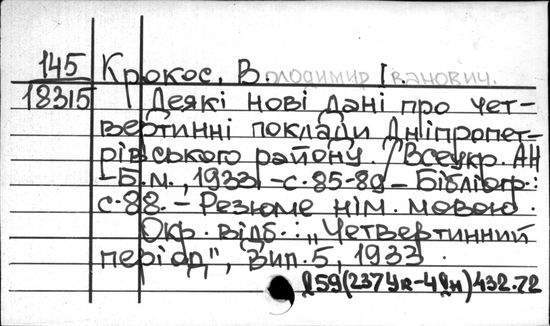 145
18315
Крокос, В. олодимир Іванович.
Деякі нові дані про чет-
вертинні поклади Дніпропет-
рівського району. /Всеукр. АН
-Б.м., 1933. -с. 85-89.- Бібліогр.:
с. 88. - Резюме нім. мовою.
Окр. відб.: „Четвертинний
період", Вип. 5, 1933.
(237Ук-4Дн)432.72